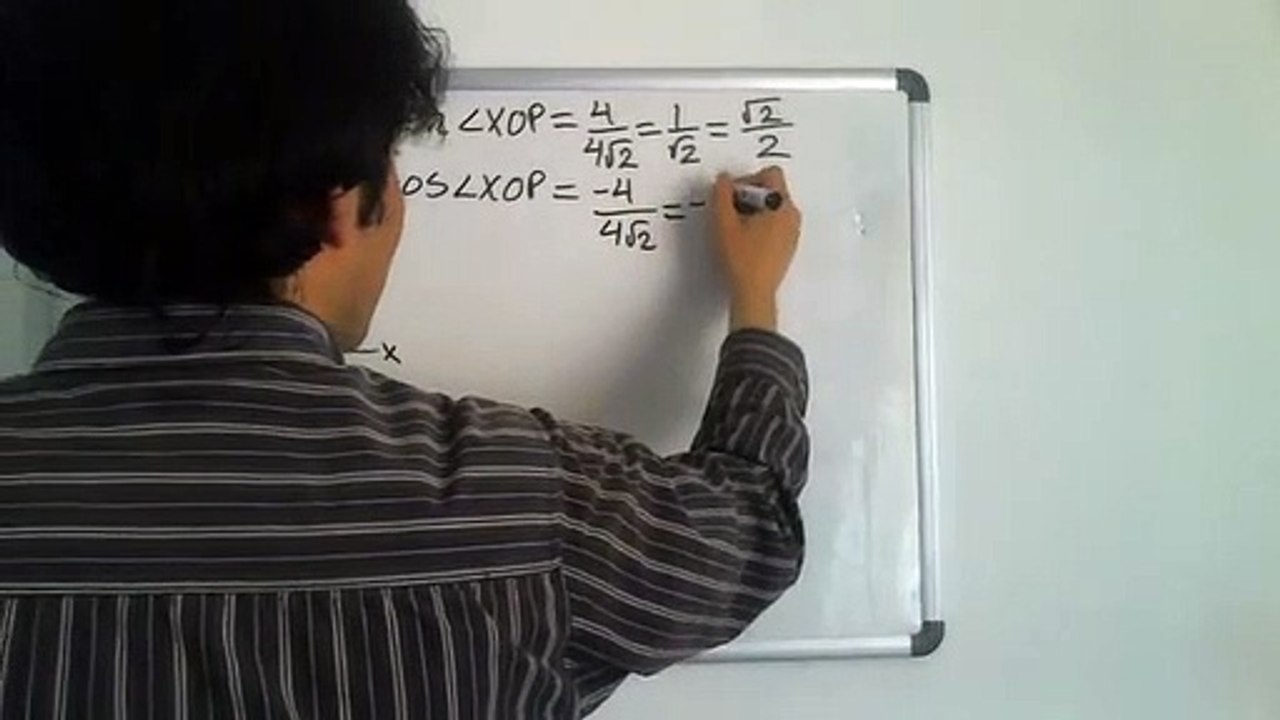 ∠XOP = 4/4√2 = 1/√2 = √2/2
os∠XOP = -4/4√2 = -
x